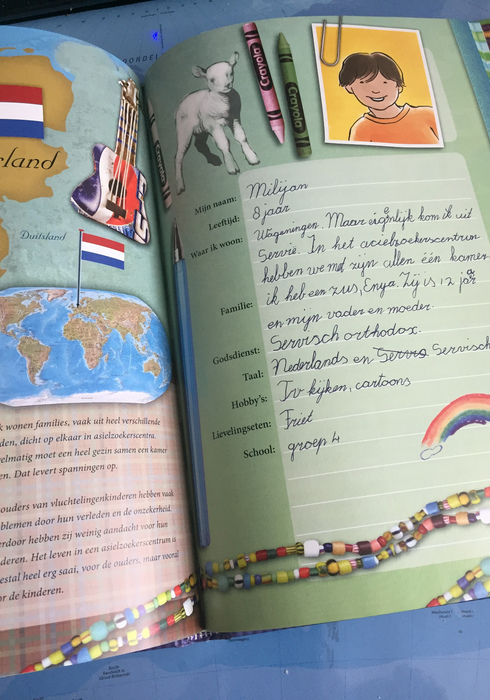 rland
Duitsland
k wonen families, vaak uit heel verschillende
den, dicht op elkaar in asielzoekerscentra.
elmatig moet een heel gezin samen een kamer
en. Dat levert spanningen op.
ouders van vluchtelingenkinderen hebben vaak
oblemen door hun verleden en de onzekerheid.
erdoor hebben zij weinig aandacht voor hun
deren. Het leven in een asielzoekerscentrum is
estal heel erg saai, voor de ouders, maar vooral
or de kinderen.
Crayola
Crayola
Mijn naam: Milijan
Leeftijd: 8 jaar
Waar ik woon: Wageningen. Maar eigenlijk kom ik uit
Servië. In het asielzoekerscentrum
hebben we met zijn allen één kamer
Familie: ik heb een zus, Enya. Zij is 12 jaar
en mijn vader en moeder.
Godsdienst: Servisch orthodox.
Taal: Nederlands en Servis Servisch
Hobby's: Tv kijken, cartoons
Lievelingseten: Friet
School: groep 4